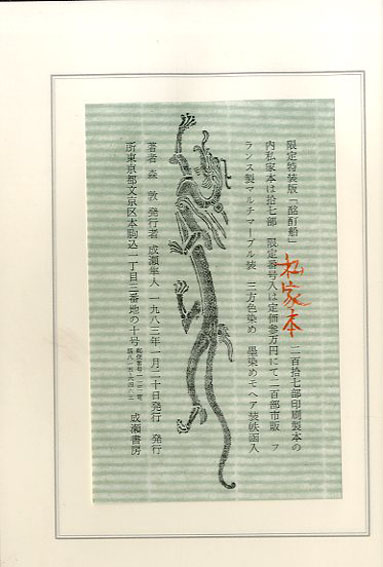 限定特装版「酩酊船」
私家本
二百拾七部印刷製本の
内私家本は拾七部 限定番号入は定価参万円にて二百部市販 フ
ランス製マルチマーブル装 三方色染め 墨染めモヘア装鉄函入
著者 森 敦 発行者 成瀬隼人 一九八三年一月二十日発行 発行
所東京都文京区本駒込一丁目三番地の十号
成瀬書房